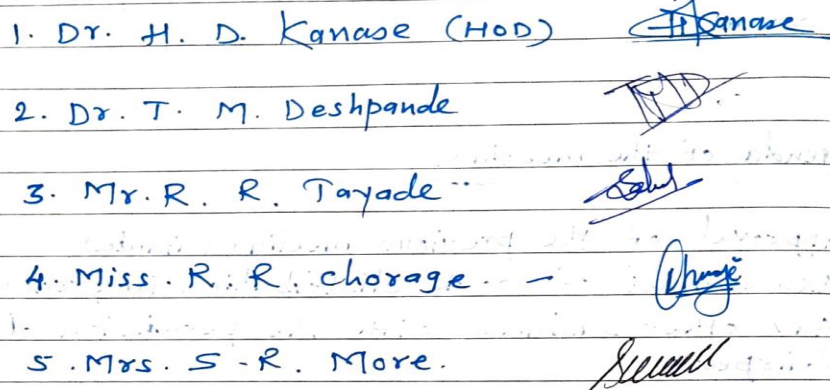 1. Dr. H. D. Kanase (HOD) HKanase
2. Dr. T. M. Deshpande
3. Mr. R. R. Tayade
4. Miss. R. R. chorage. -
5. Mrs. S-R. More.